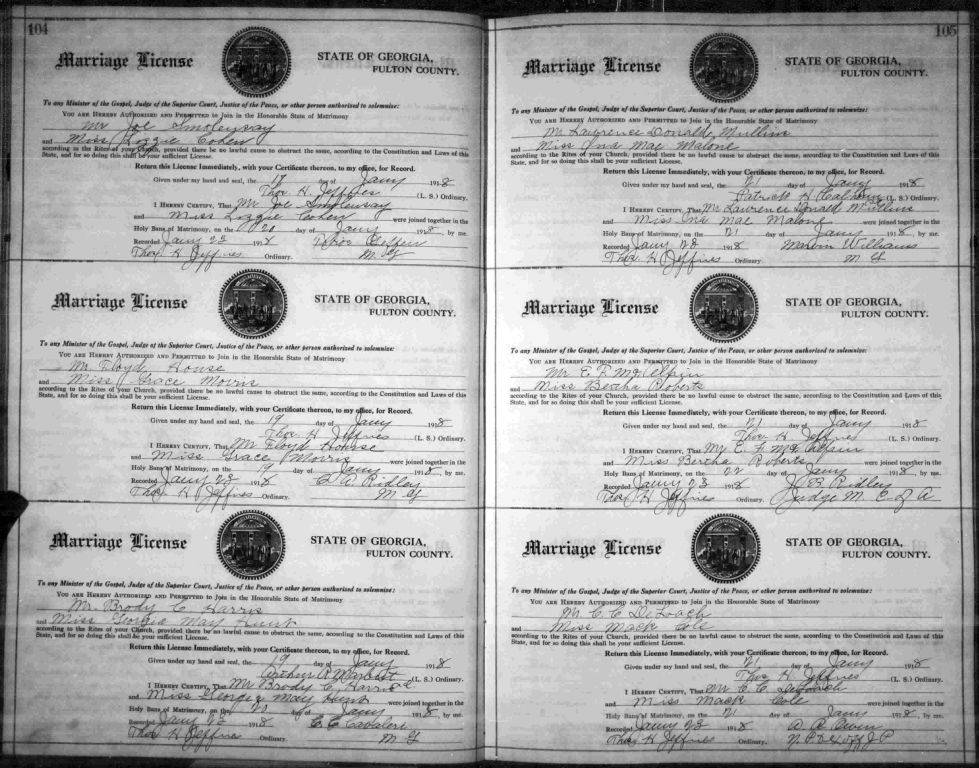 104
Marriage License
STATE OF GEORGIA,
FULTON COUNTY.
To any Minister of the Gospel, Judge of the Superior Court, Justice of the Peace, or other person authorized to solemnize:
YOU ARE HEREBY AUTHORIZED AND PERMITTED to Join in the Honorable State of Matrimony
Mr Joe Smolensay
and Miss Lizzie Cohen
according to the Rites of your Church, provided there be no lawful cause to obstruct the same, according to the Constitution and Laws of this
State, and for so doing this shall be your sufficient License.
Return this License Immediately, with your Certificate thereon, to my office, for Record.
Given under my hand and seal, the 17 day of Jany 1918
Thos H. Jeffries (L. S.) Ordinary.
I HEREBY CERTIFY, That Mr Joe Smolensay
and Miss Lizzie Cohen were joined together in the
Holy Bans of Matrimony, on the 20 day of Jany 1918, by me.
Recorded Jany 23 1918
Thos H Jeffries Ordinary. M G
Marriage License
STATE OF GEORGIA,
FULTON COUNTY.
To any Minister of the Gospel, Judge of the Superior Court, Justice of the Peace, or other person authorized to solemnize:
YOU ARE HEREBY AUTHORIZED AND PERMITTED to Join in the Honorable State of Matrimony
Mr Floyd House
and Miss Grace Morris
according to the Rites of your Church, provided there be no lawful cause to obstruct the same, according to the Constitution and Laws of this
State, and for so doing this shall be your sufficient License.
Return this License Immediately, with your Certificate thereon, to my office, for Record.
Given under my hand and seal, the 19 day of Jany 1918
Thos H Jeffries (L. S.) Ordinary.
I HEREBY CERTIFY, That Mr Floyd House
and Miss Grace Morris were joined together in the
Holy Bans of Matrimony, on the 19 day of Jany 1918, by me.
Recorded Jany 23 1918 C A Ridley
Thos H Jeffries Ordinary. M G
Marriage License
STATE OF GEORGIA,
FULTON COUNTY.
To any Minister of the Gospel, Judge of the Superior Court, Justice of the Peace, or other person authorized to solemnize:
YOU ARE HEREBY AUTHORIZED AND PERMITTED to Join in the Honorable State of Matrimony
Mr. Brody C Harris
and Miss Georgia May Hunt
according to the Rites of your Church, provided there be no lawful cause to obstruct the same, according to the Constitution and Laws of this
State, and for so doing this shall be your sufficient License.
Return this License Immediately, with your Certificate thereon, to my office, for Record.
Given under my hand and seal, the 19 day of Jany 1918
Arthur R (L. S.) Ordinary.
I HEREBY CERTIFY, That Mr Brody C Harris
and Miss Georgia May Hunt were joined together in the
Holy Bans of Matrimony, on the 21 day of Jany 1918, by me.
Recorded Jany 23 1918 C. C.
Thos H Jeffries Ordinary. M G
105
Marriage License
STATE OF GEORGIA,
FULTON COUNTY.
To any Minister of the Gospel, Judge of the Superior Court, Justice of the Peace, or other person authorized to solemnize:
YOU ARE HEREBY AUTHORIZED AND PERMITTED to Join in the Honorable State of Matrimony
Mr Lawrence Donald Mullins
and Miss Ina Mae Malone
according to the Rites of your Church, provided there be no lawful cause to obstruct the same, according to the Constitution and Laws of this
State, and for so doing this shall be your sufficient License.
Return this License Immediately, with your Certificate thereon, to my office, for Record.
Given under my hand and seal, the 21 day of Jany 1918
Patrick H Calhoun (L. S.) Ordinary.
I HEREBY CERTIFY, That Mr Lawrence Donald Mullins
and Miss Ina Mae Malone were joined together in the
Holy Bans of Matrimony, on the 21 day of Jany 1918, by me.
Recorded Jany 23 1918 Marvin Williams
Thos H Jeffries Ordinary. M G
Marriage License
STATE OF GEORGIA,
FULTON COUNTY.
To any Minister of the Gospel, Judge of the Superior Court, Justice of the Peace, or other person authorized to solemnize:
YOU ARE HEREBY AUTHORIZED AND PERMITTED to Join in the Honorable State of Matrimony
Mr E. F. McElpin
and Miss Bertha Roberts
according to the Rites of your Church, provided there be no lawful cause to obstruct the same, according to the Constitution and Laws of this
State, and for so doing this shall be your sufficient License.
Return this License Immediately, with your Certificate thereon, to my office, for Record.
Given under my hand and seal, the 21 day of Jany 1918
Thos H Jeffries (L. S.) Ordinary.
I HEREBY CERTIFY, That Mr E. F. McElpin
and Miss Bertha Roberts were joined together in the
Holy Bans of Matrimony, on the 22 day of Jany 1918, by me.
Recorded Jany 23 1918 J. B Ridley
Thos H Jeffries Ordinary. Judge M C of A
Marriage License
STATE OF GEORGIA,
FULTON COUNTY.
To any Minister of the Gospel, Judge of the Superior Court, Justice of the Peace, or other person authorized to solemnize:
YOU ARE HEREBY AUTHORIZED AND PERMITTED to Join in the Honorable State of Matrimony
Mr C. C DeLoach
and Miss Mack Cole
according to the Rites of your Church, provided there be no lawful cause to obstruct the same, according to the Constitution and Laws of this
State, and for so doing this shall be your sufficient License.
Return this License Immediately, with your Certificate thereon, to my office, for Record.
Given under my hand and seal, the 21 day of Jany 1918
Thos H Jeffries (L. S.) Ordinary.
I HEREBY CERTIFY, That Mr C. C. DeLoach
and Miss Mack Cole were joined together in the
Holy Bans of Matrimony, on the 21 day of Jany 1918, by me.
Recorded Jany 23 1918
Thos H Jeffries Ordinary. J P